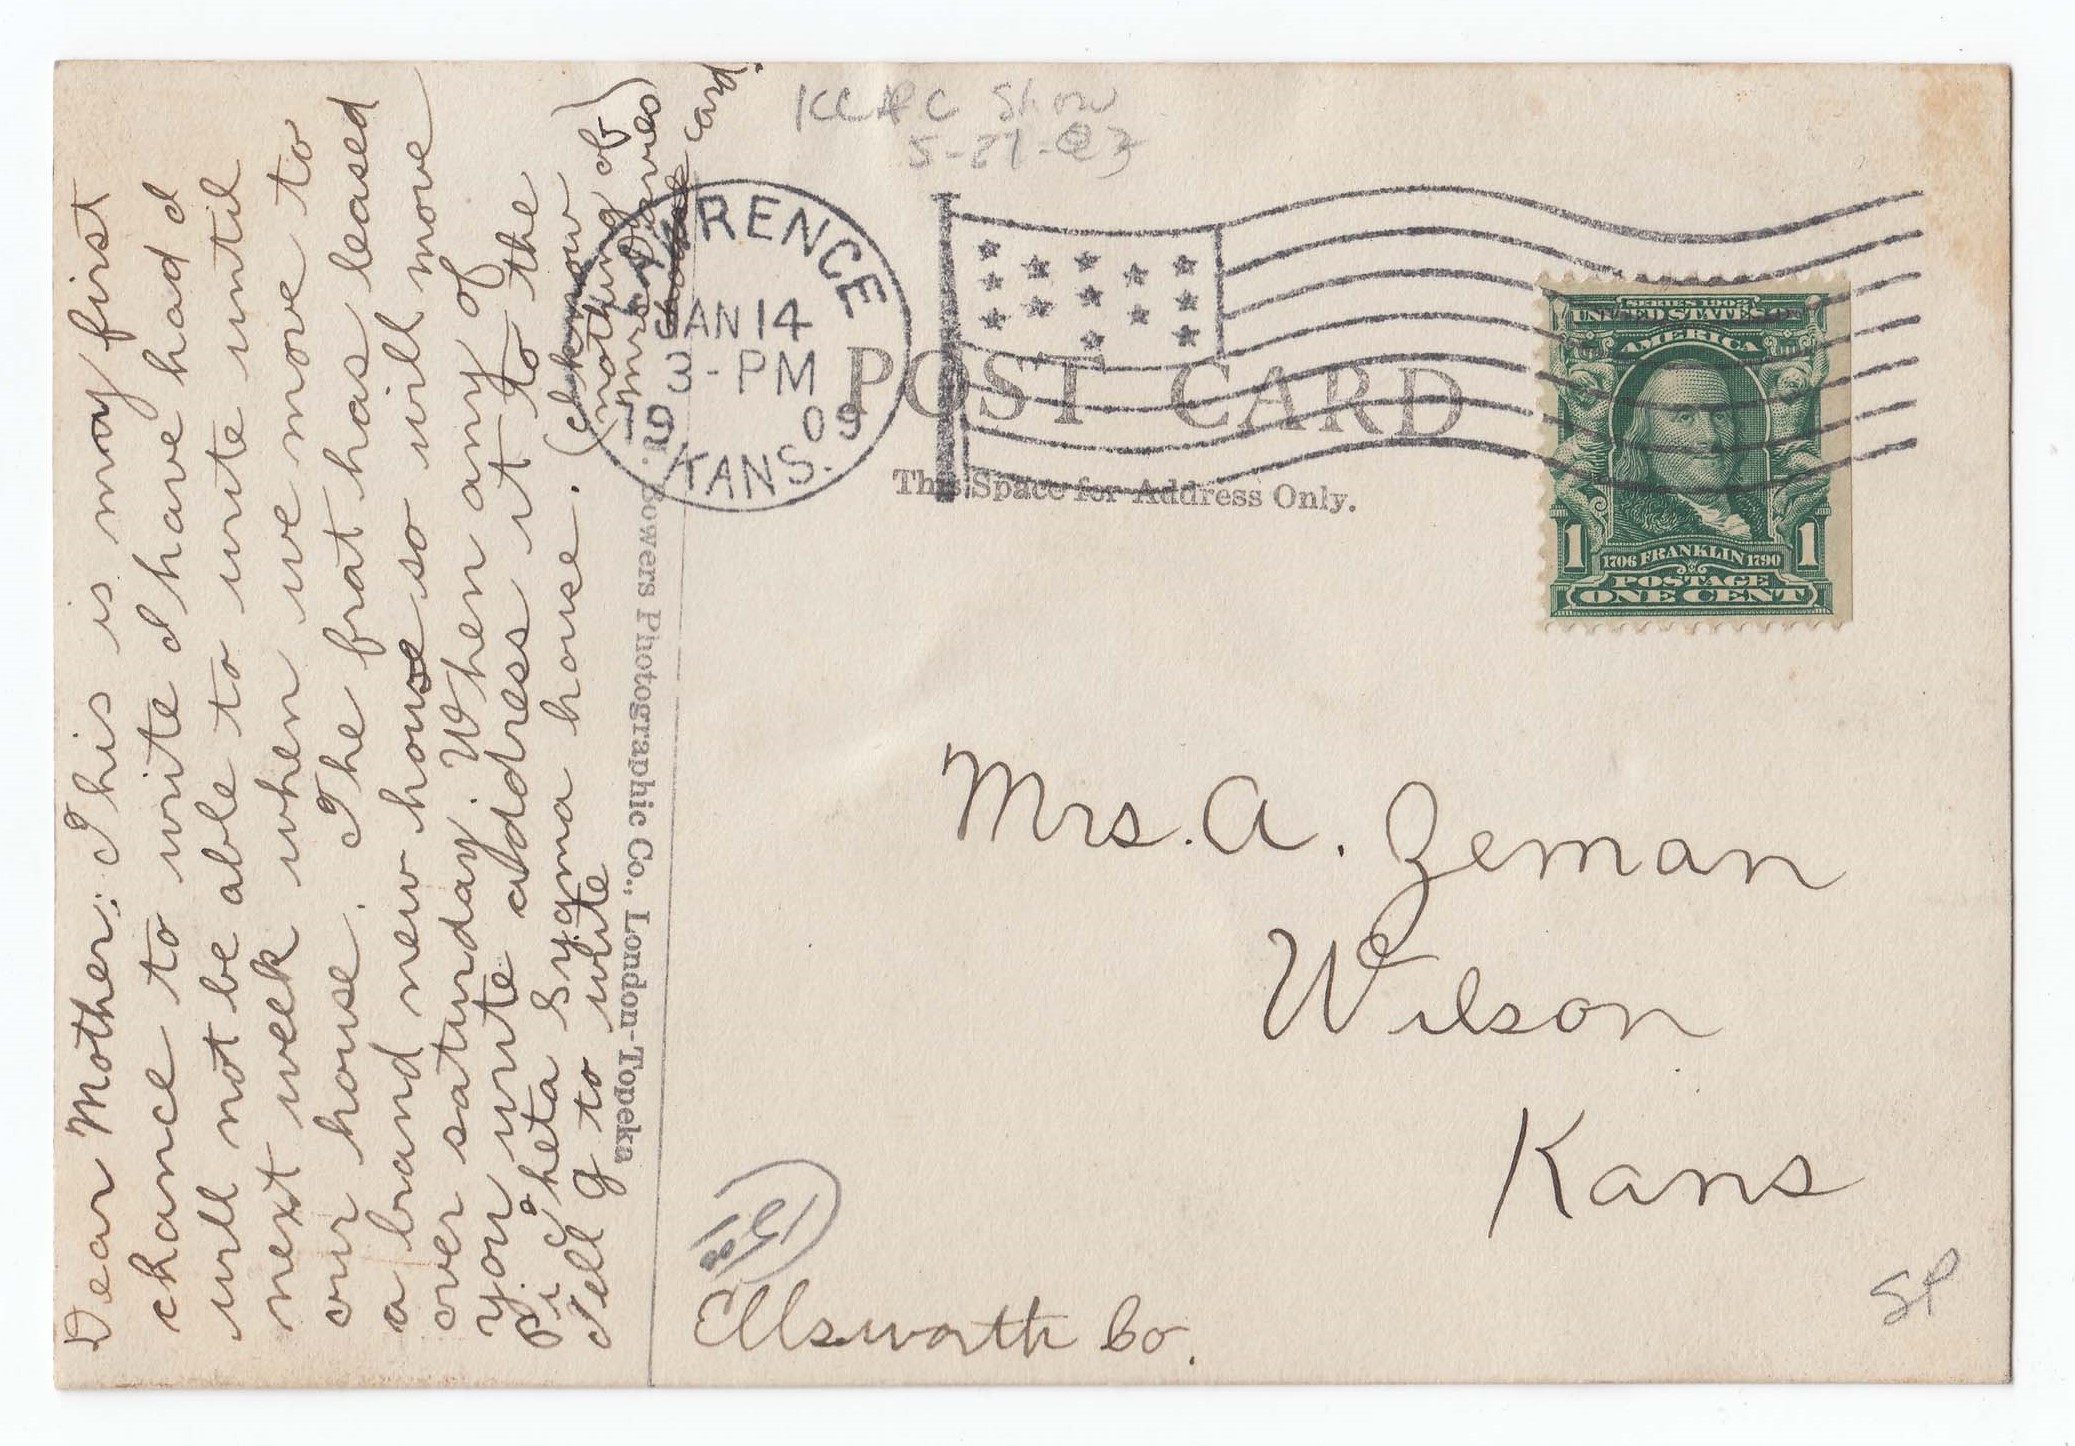 Dear Mother: This is my first
chance to write I have had I
will not be able to write until
next week when we move to
our house. The frat has leased
a brand new house so will move
over saturday. When any of
you write address it to the
Pi Cheta Sygma house. (I know
Tell G to write
nothing of
card.
F. Bowers Photographic Co., London-Topeka
KCPC Show
LAWRENCE
JAN 14
3-PM
09
KANS.
POST CARD
This Space for Address Only.
SERIES 1902
UNITED STATES OF
AMERICA
1 1
1706 FRANKLIN 1790
POSTAGE
ONE CENT
Mrs. A. Zeman
Wilson
Kans
Ellsworth Co.
SP